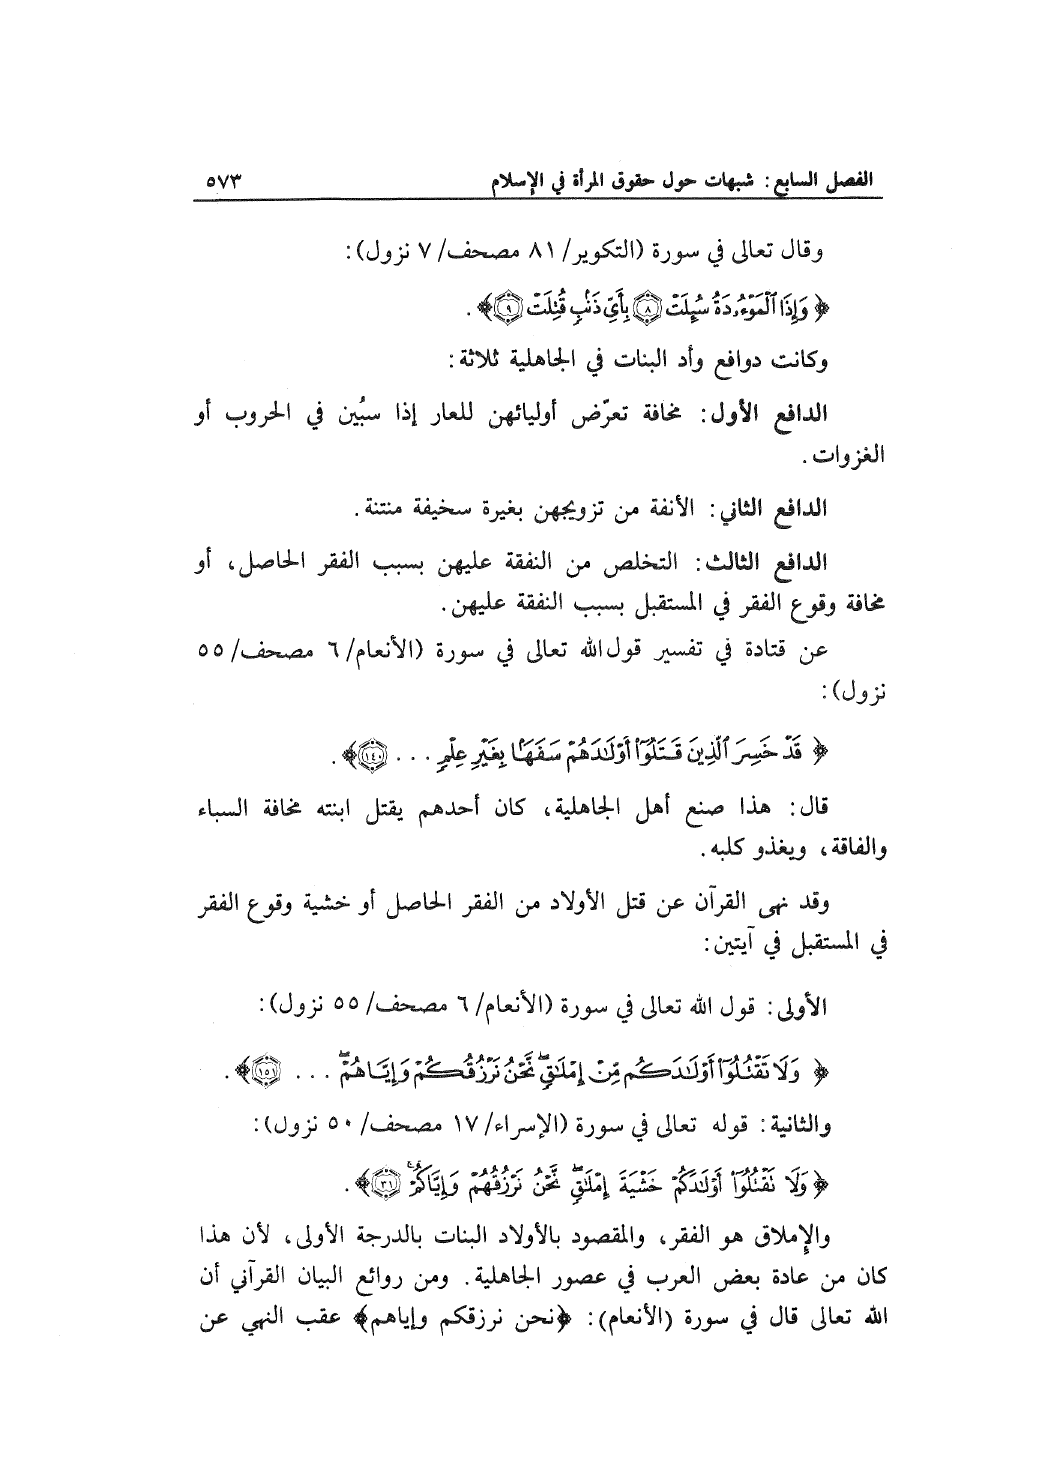 الفصل السابع: شبهات حول حقوق المرأة في الإسلام ٥٧٣
وقال تعالى في سورة (التكوير/ ٨١ مصحف/ ٧ نزول):
﴿وَإِذَا ٱلۡمَوۡءُۥدَةُ سُئِلَتۡ ٨ بِأَيِّ ذَنۢبٖ قُتِلَتۡ ٩﴾.
وكانت دوافع وأد البنات في الجاهلية ثلاثة:
الدافع الأول: مخافة تعرّض أوليائهن للعار إذا سبُين في الحروب أو
الغزوات.
الدافع الثاني: الأنفة من تزويجهن بغيرة سخيفة منتنة.
الدافع الثالث: التخلص من النفقة عليهن بسبب الفقر الحاصل، أو
مخافة وقوع الفقر في المستقبل بسبب النفقة عليهن.
عن قتادة في تفسير قول الله تعالى في سورة (الأنعام/ ٦ مصحف/ ٥٥
نزول):
﴿قَدۡ خَسِرَ ٱلَّذِينَ قَتَلُوٓاْ أَوۡلَٰدَهُمۡ سَفَهَۢا بِغَيۡرِ عِلۡمٖ ... ١٤٠﴾.
قال: هذا صنع أهل الجاهلية، كان أحدهم يقتل ابنته مخافة السباء
والفاقة، ويغذو كلبه.
وقد نهى القرآن عن قتل الأولاد من الفقر الحاصل أو خشية وقوع الفقر
في المستقبل في آيتين:
الأولى: قول الله تعالى في سورة (الأنعام/ ٦ مصحف/ ٥٥ نزول):
﴿وَلَا تَقۡتُلُوٓاْ أَوۡلَٰدَكُم مِّنۡ إِمۡلَٰقٖۖ نَّحۡنُ نَرۡزُقُكُمۡ وَإِيَّاهُمۡۖ ... ١٥١﴾.
والثانية: قوله تعالى في سورة (الإسراء/ ١٧ مصحف/ ٥٠ نزول):
﴿وَلَا تَقۡتُلُوٓاْ أَوۡلَٰدَكُمۡ خَشۡيَةَ إِمۡلَٰقٖۖ نَّحۡنُ نَرۡزُقُهُمۡ وَإِيَّاكُمۡۚ ٣١﴾.
والإملاق هو الفقر، والمقصود بالأولاد البنات بالدرجة الأولى، لأن هذا
كان من عادة بعض العرب في عصور الجاهلية. ومن روائع البيان القرآني أن
الله تعالى قال في سورة (الأنعام): ﴿نحن نرزقكم وإياهم﴾ عقب النهي عن